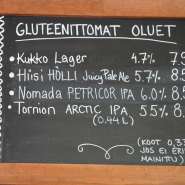 GLUTEENITTOMAT OLUET
• Kukko Lager 4.7% 7.9
• Hiisi HÖLLI Juicy Pale Ale 5.7% 8.
• Nomada PETRICOR IPA 6.0% 8.
• Tornion ARCTIC IPA 5.5% 8.
(0.44L)
(KOOT 0,33
JOS EI ERI
MAINITTU)